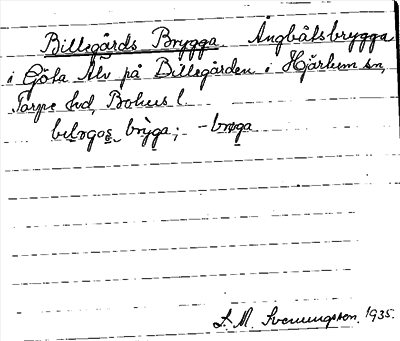 Billegårds Brygga Ångbåtsbrygga
i Göta Älv på Billegården i Hjärtum sn,
Torpe hd, Bohus l.
bilogos bryga; -bryga
S. M. Svenungsson. 1935.